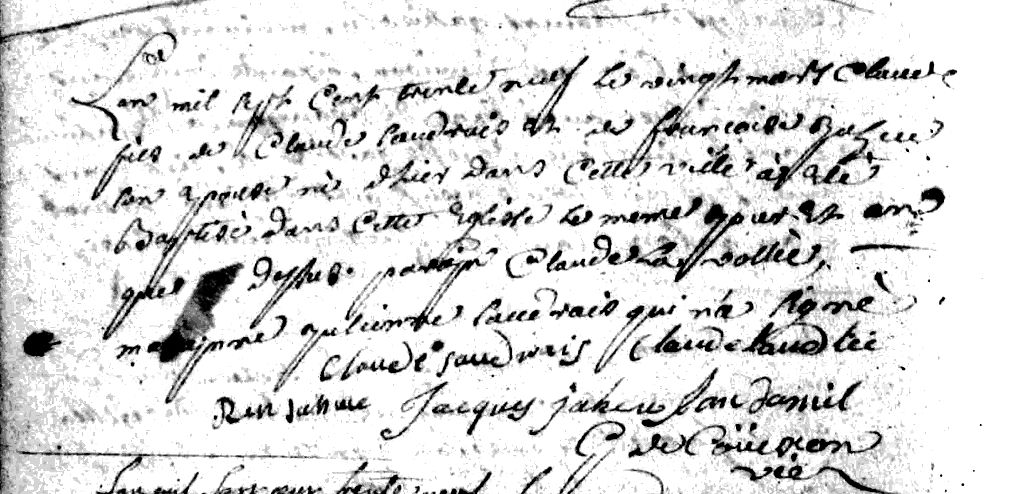 L'an mil sept cent trente neuf le vingt mars Claude
fils de Claude Saudrais et de francoise Jaheu
son epouse né d'hier dans cette ville a eté
Baptisé dans cette Eglise le meme jour et an
que dessus parain Claude La vollée,
maraine Julienne Saudrais qui n'a signé
Claude Saudrais Claude
Jacques jaheu
G de Coüesson
vic
L'an mil sept cent trente neuf l